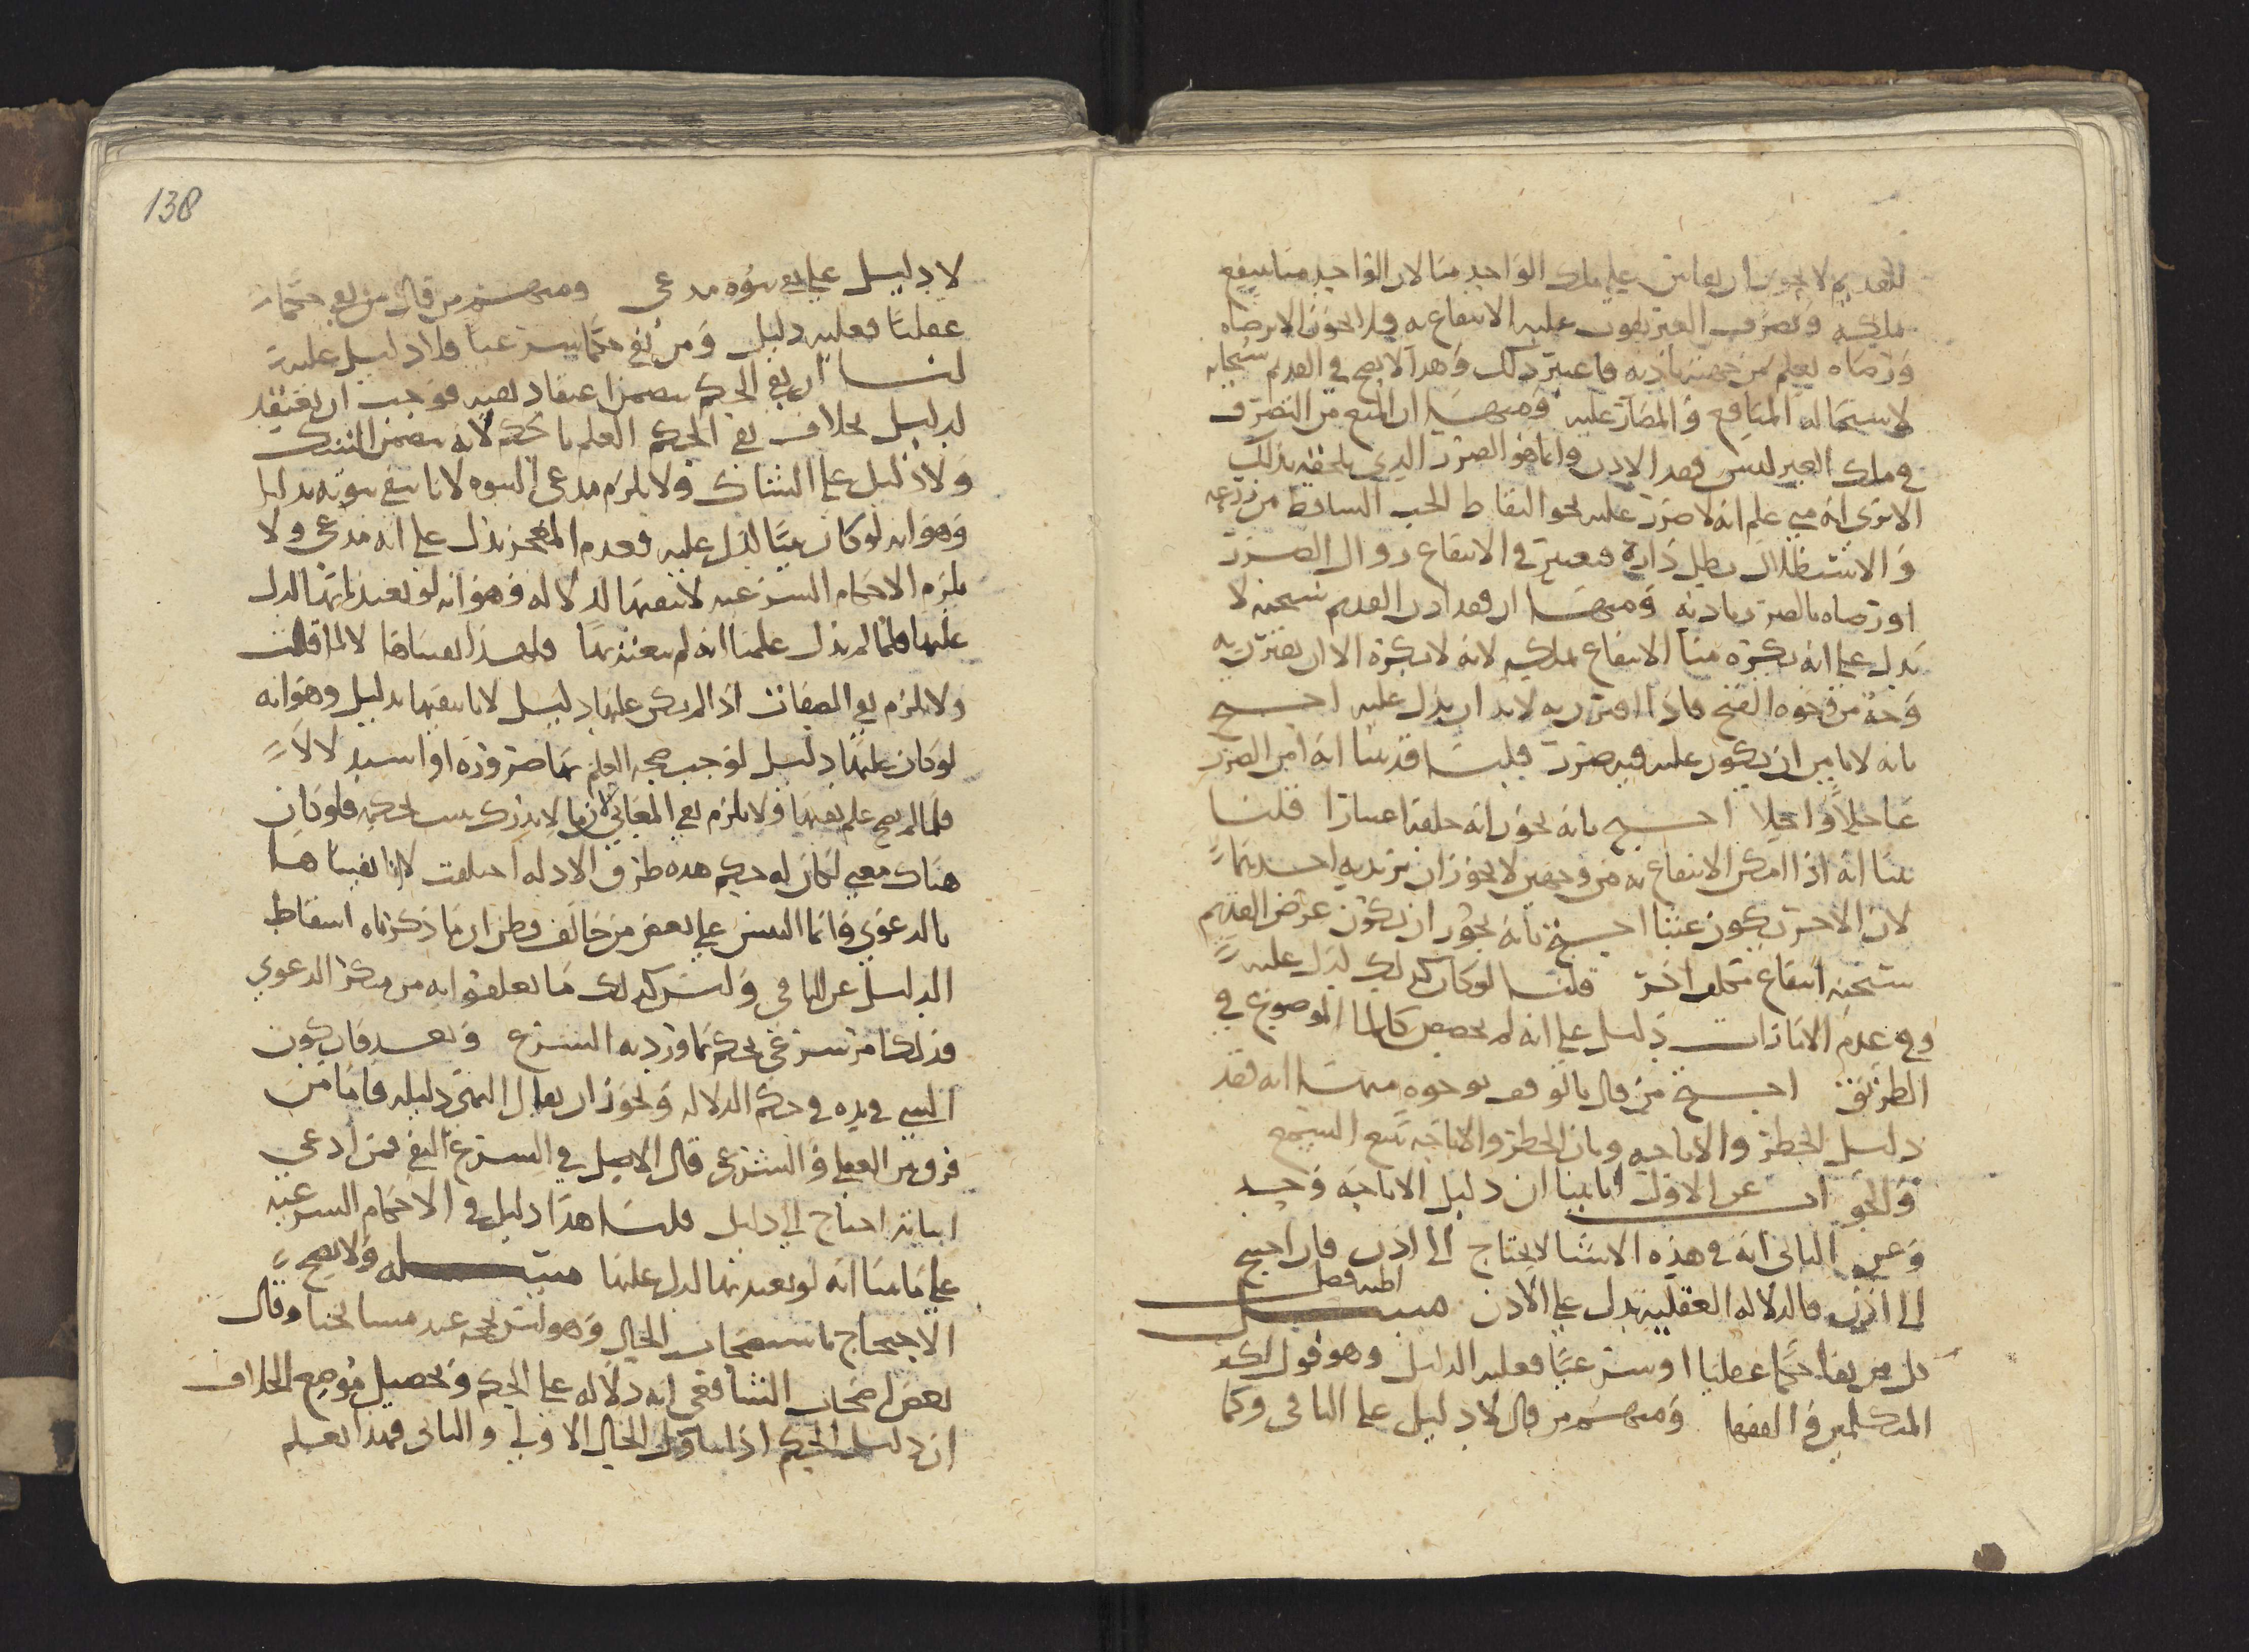 للقديم لا يجوز ان يقاس على ملك الواحد منا لان الواحد منا ينتفع
بملكه وتصرف الغير يفوت عليه الانتفاع به ولا يجوز الا برضاه
ورضاه يعلم من جهته باذنه فاعتبر ذلك وهذا لا يصح في القديم سبحانه
لاستحالة المنافع والمضار عليه ومنها ان المنع من التصرف
في ملك الغير ليس لفقد الاذن وانما هو الضرر الذي يلحقه بذلك
الا ترى انه متى علم انه لا ضرر عليه نحو التقاط الحب الساقط من زرعه
والاستظلال بظل داره فيعتبر في الانتفاع زوال الضرر
او رضاه بالضرر باذنه ومنها ان فقد اذن القديم سبحنه لا
يدل على انه يكره منا الانتفاع بملكه لانه لا يكره الا ان يقترن به
وجه من وجوه القبح فاذا اقترن به لا بد ان يدل عليه احتج
بانه لا نامن ان يكون عليه فيه ضرر قلنا قد بينا انه امن الضرر
عاجلا واجلا احتج بانه يجوز انه خلقها اعتبارا قلنا
بينا انه اذا امكن الانتفاع به من وجهين لا يجوز ان يريد به احدهما
لان الاخر يكون عبثا احتج بانه يجوز ان يكون غرض القديم
سبحنه انتفاع مكلف اخر قلنا لو كان كذلك لدل عليه
وفي عدم الامارات دليل على انه لم يخصص كالماء الموضوع في
الطريق احتج من قال بالوقف بوجوه منها انه فقد
دليل الحظر والاباحة وبان الحظر والاباحة تتبع السمع
والجواب عن الاول انا بينا ان دليل الاباحة وجد
وعن الثاني انه في هذه الاشيا لا يحتاج الى اذن فان احتيج
الى اذن فالدلالة العقلية تدل على الاذن
كل من نفا حكما عقليا او شرعيا فعليه الدليل وهو قول اكثر
المتكلمين والفقها ومنهم من قال لا دليل على النافي وكما
138
لا دليل على نفي نبوه مدعي ومنهم من قال من نفى حكما
عقليا فعليه دليل ومن نفى حكما شرعيا فلا دليل عليه
لنا ان نفي الحكم يتضمن اعتقاد نفيه فوجب ان يفتقد
لدليل بخلاف نفي الحكم العلم بالحكم لانه يتضمن الشك
ولا دليل على الشاك ولا يلزم مدعي النبوه لانا ننفي نبوته بدليل
وهو انه لو كان نبيا لدل عليه فعدم المعجز يدل على انه مدعي ولا
يلزم الاحكام الشرعيه لانتفيها لدلاله وهو انه لو تعبدنا بها لدل
عليها فلما لم يدل علمنا انه لم يتعبد بها فلهذا نفيناها لا لما قلت
ولا يلزم نفي الصفات اذا لم يكن عليها دليل لانا ننفيها بدليل وهو انه
لو كان عليها دليل لوجب صحه العلم بها ضروره او استدلالا
فلما لم يصح علم نفيها ولا يلزم نفي المعاني لانها لا تدرك حكمه فلو كان
هناك معنى لكان له حكم هذه طرق الادله اختلفت لانا نفيناها
بالدعوى وانما التبس على بعض من خالف وظن ان ما ذكرناه اسقاط
الدليل عن النافي وليس كذلك ما تعلقوا به من منكر الدعوى
فذلك امر شرعي يحكم بما ورد به الشرع وبعد فان كون
الشي في يده في حكم الدلاله ويجوز ان يقال اليمين دليله فاما من
فرق بين العقلي والشرعي قال الاصل في الشرع النفي فمن ادعى
اثباته احتاج الى دليل قلنا هذا دليل في الاحكام الشرعيه
على ما بينا انه لو تعبد بها لدل عليها مسئلة ولا يصح
الاحتجاج باستصحاب الحال وهو ليس بحجه عند مشايخنا وقال
بعض اصحاب الشافعي انه دلاله على الحكم وتحصيل موضع الخلاف
ان دليل الحكم اذا تناول الحال الاولى والثاني فهذا يعلم